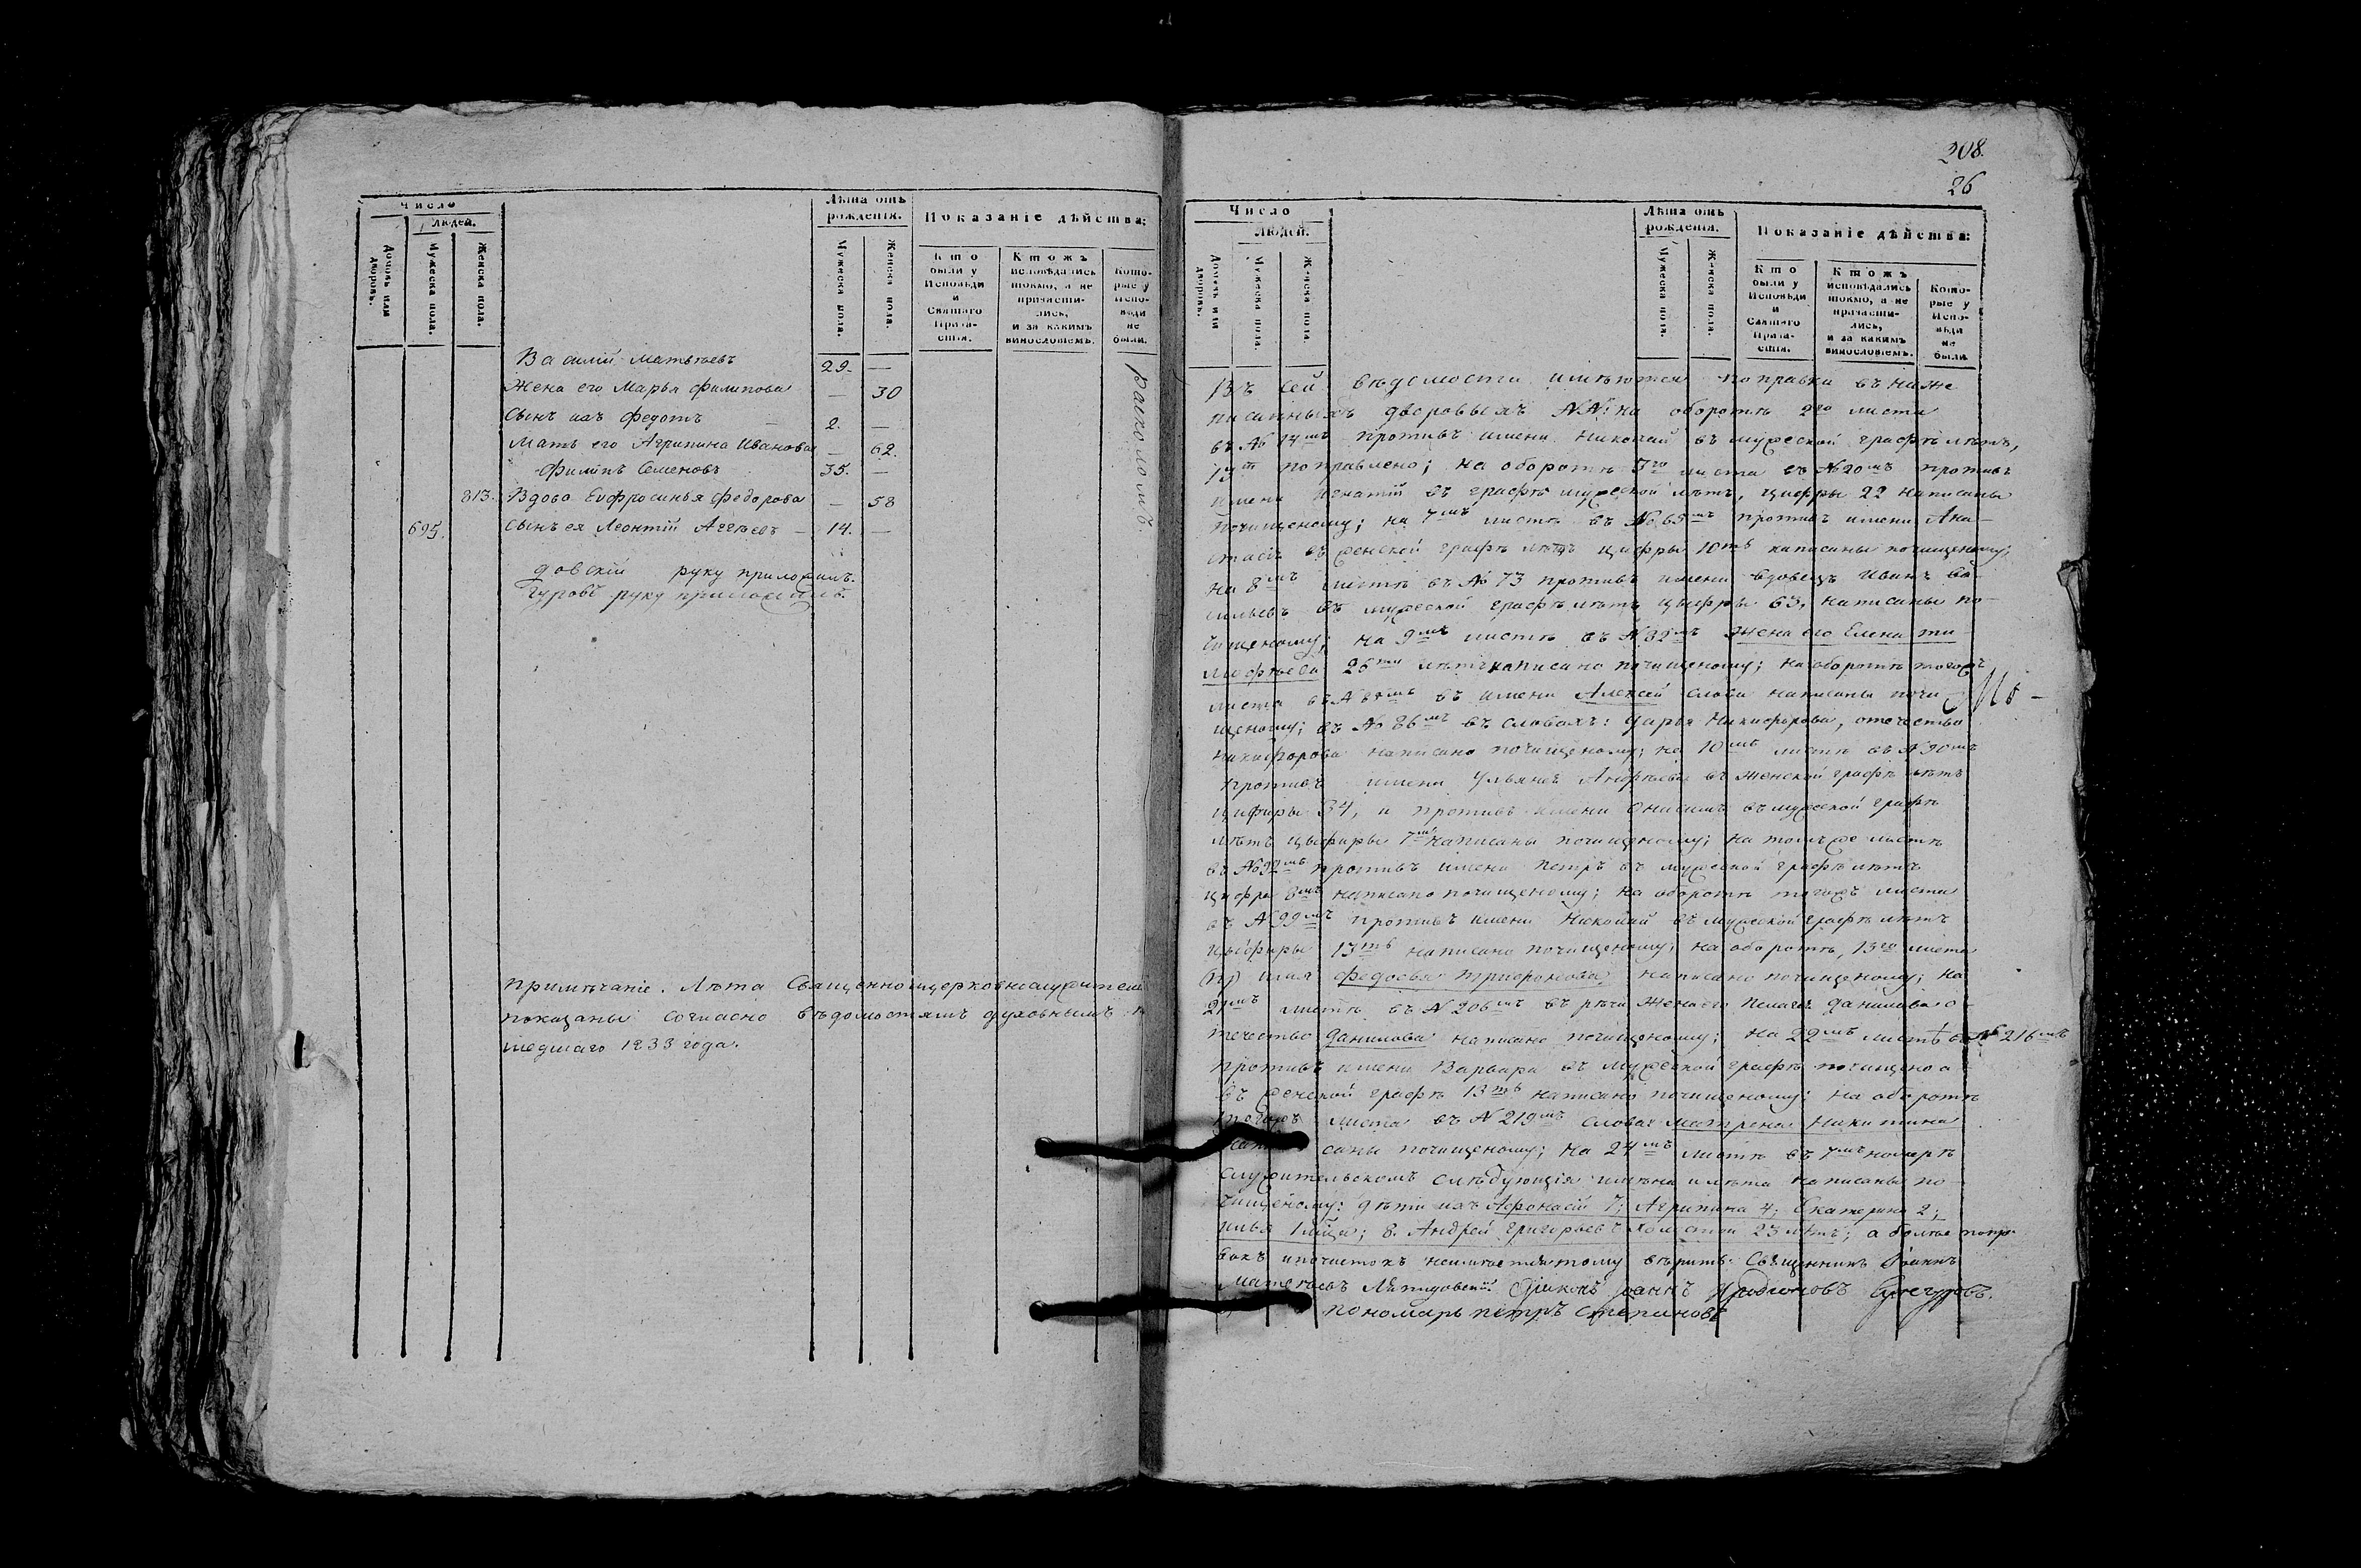 Число
Людей.
Домовъ или дворовъ.
Мужеска пола.
Женска пола.
Лѣта отъ рожденія.
Мужеска пола.
Женска пола.
Показаніе дѣйства:
Кто были у Исповѣди и Святаго Прича-стія.
Ктожъ исповѣдались токмо, а не причасти-лись, и за какимъ винословіемъ.
Кото-рые у Испо-вѣди не были.
Василій Матвѣевъ 29. —
Жена его Марья Филипова — 30
Сынъ ихъ Федотъ — 2. —
Мать его Агрипина Иванова — 62.
Филипъ Семеновъ 35. —
813. Вдова Евфросинья Федорова — 58
695. Сынъ ея Леонтій Аггѣевъ — 14. —
расколомъ.
довскій руку приложилъ.
гуровъ руку приложилъ.
Примѣчаніе. Лѣта Священноицерковнослужителей
показаны согласно вѣдомостямъ духовнымъ
шедшаго 1833 года.
308.
26
Число
Людей.
Домовъ или дворовъ.
Мужеска пола.
Женска пола.
Лѣта отъ рожденія.
Мужеска пола.
Женска пола.
Показаніе дѣйства:
Кто были у Исповѣди и Святаго Прича-стія.
Ктожъ исповѣдались токмо, а не причасти-лись, и за какимъ винословіемъ.
Кото-рые у Испо-вѣди не были.
Въ сей вѣдомости имѣются поправки въ ниже
писанныхъ дворовыхъ №№: на оборотѣ 2го листа
въ № 14мъ противъ имени Николай въ мужеской графѣ лѣтъ,
поправлено; на оборотѣ листа въ № 20мъ противъ
имени Игнатій въ графѣ мужеской лѣтъ, цифры 22 написаны
почищеному; на 7мъ листѣ въ № 65мъ противъ имени Ана-
стасіи въ женской графѣ лѣтъ цифры 10ть написаны почищеному,
на 8мъ листѣ въ № 73 противъ имени вдовецъ Иванъ Ва-
сильевъ въ мужеской графѣ лѣтъ цыфры 63, написаны по-
чищеному; на 9мъ листѣ въ № 82мъ Жена его Елена Ти
мофѣева 26ти лѣтъ написано почищеному; на оборотѣ тогожъ
листа въ № въ имени Алексей слова написаны почи
щеному; въ № 86мъ въ словахъ: Дарья Никифорова, отечество
Никифорова написано почищеному; на 10мъ листѣ въ № 90мъ
противъ имени Ульяны Андрѣевы въ женской графѣ лѣтъ
цыфиры 34, и противъ имени Онисимъ въ мужеской графѣ
лѣтъ цыфиры 7мь написаны почищеному; на томъ же листѣ
въ № 92мъ противъ имени Петръ въ мужеской графѣ лѣтъ
цифра 8мь написано почищеному; на оборотѣ тогожъ листа
въ № 99мъ противъ имени Николай въ мужеской графѣ лѣтъ
цыфиры 13ть написано почищеному; на оборотѣ, 13го листа
имя Федосья Трифонова написано почищеному; на
21мъ листѣ въ № 206мъ въ рѣчи Жена его Пелагія Данилова о-
течество Данилова написано почищеному; на 22мъ листѣ въ № 216мъ
противъ имени Варвара въ мужеской графѣ почищено а
въ женской графѣ 13ть написано почищеному; на оборотѣ
тогожъ листа въ № 219мъ слова Матрена Никитина
написаны почищеному; на 24мъ листѣ въ 7мъ номерѣ
служительскомъ слѣдующія имѣна и лѣта написаны по-
чищеному: дѣти ихъ Афонасій 7; Агрипина 4; Екатерина 2;
Илья 1 года; 8. Андрей Григорьевъ холостой 23 лѣтъ; а болѣе попра
вокъ ипочистокъ неимѣется тому вѣрить. Священникъ Іоаннъ
Матвѣевъ Діаконъ Іоаннъ
Пономарь Петръ Степановъ